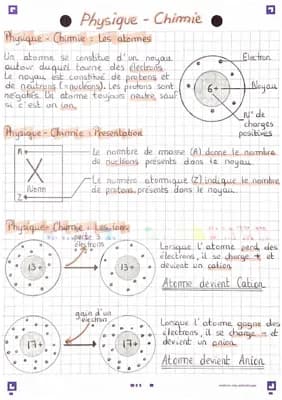 Physique - Chimie
Physique - Chimie : Les atomes
Un atome se constitue d'un noyau
autour duquel tourne des électrons.
Le noyau est constitué de protons et
de neutrons (=nucléons). Les protons sont
négatifs. Un atome toujours neutre, sauf
si c'est un ion.
Electron
6+
Noyau
N° de
charges
positives
Physique - Chimie : Présentation
A
X
Z
Nom
Le nombre de masse (A) donne le nombre
de nucléons présents dans le noyau.
Le numéro atomique (Z) indique le nombre
de protons présents dans le noyau.
Physique - Chimie : Les ions
perte 3
électrons
13+
13+
Lorsque l'atome perd des
électrons, il se charge + et
devient un cation
Atome devient Cation
gain d'un
électron
17+
17+
Lorsque l'atome gagne des
électrons, il se charge - et
devient un anion.
Atome devient Anion